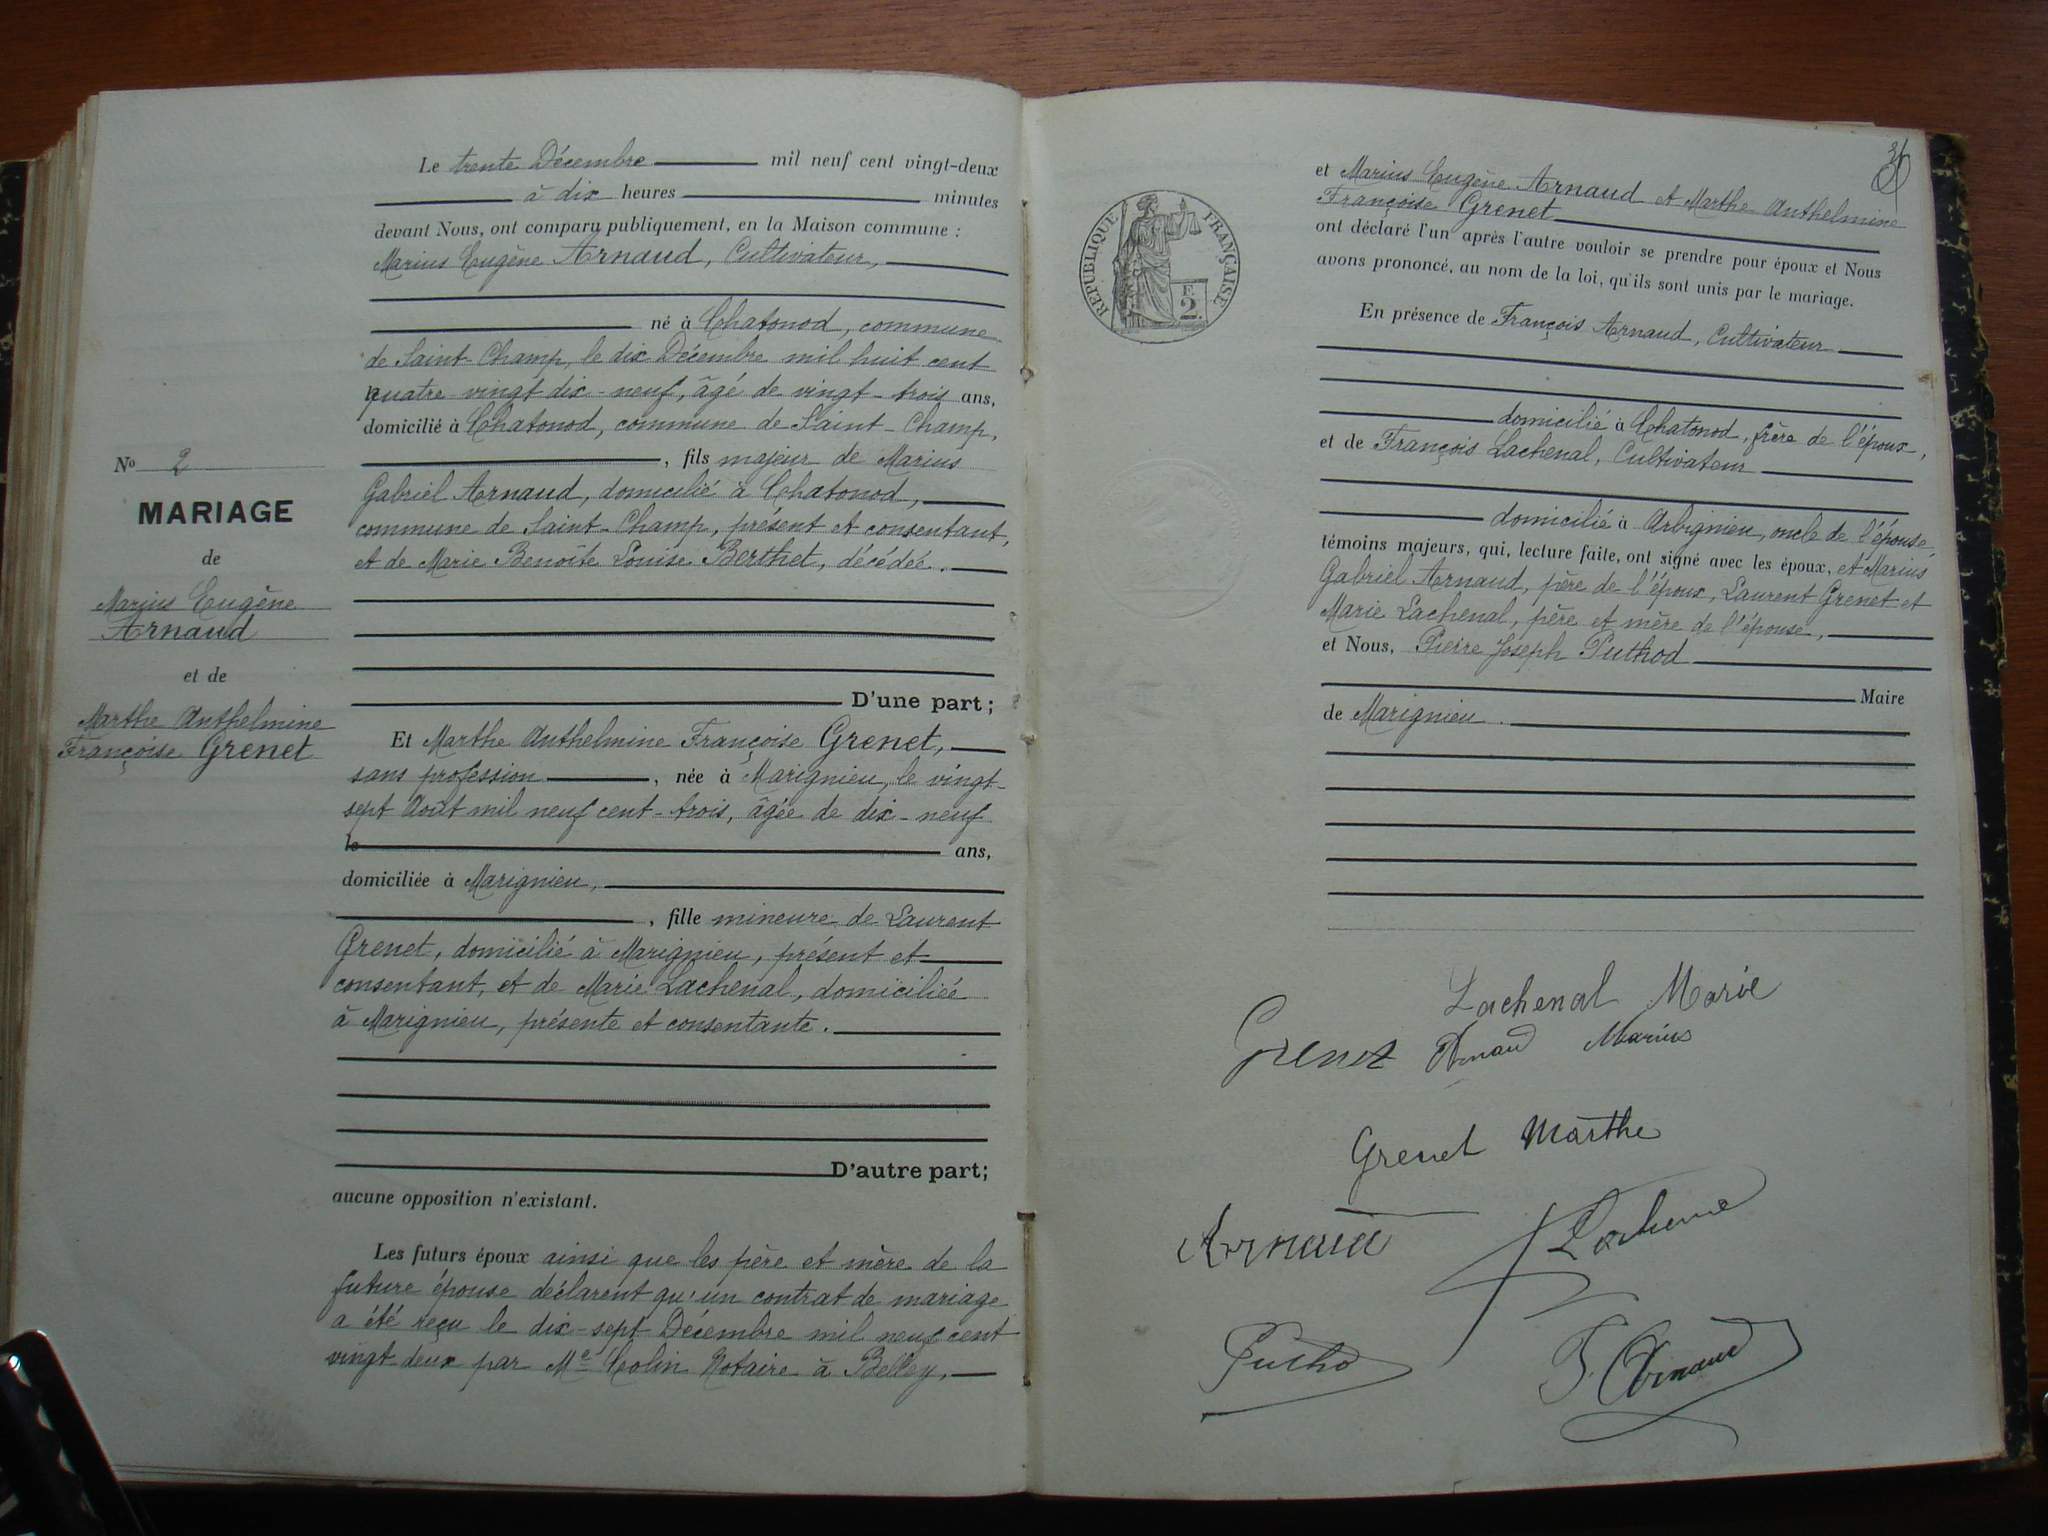 Le trente Décembre mil neuf cent vingt-deux
à dix heures minutes
devant Nous, ont comparu publiquement, en la Maison commune :
Marius Eugène Arnaud, Cultivateur,
né à Chatonod, commune
de Saint-Champ, le dix Décembre mil huit cent
quatre vingt dix-neuf, âgé de vingt-trois ans,
domicilié à Chatonod, commune de Saint-Champ,
, fils majeur de Marius
Gabriel Arnaud, domicilié à Chatonod,
commune de Saint-Champ, présent et consentant,
et de Marie Benoîte Louise Berthet, décédée.
D'une part ;
Et Marthe Anthelmine Françoise Grenet,
sans profession , née à Marignieu, le vingt-
sept Août mil neuf cent-trois, âgée de dix-neuf
ans,
domiciliée à Marignieu,
, fille mineure de Laurent
Grenet, domicilié à Marignieu, présent et
consentant, et de Marie Lachenal, domiciliée
à Marignieu, présente et consentante.
D'autre part;
aucune opposition n'existant.
Les futurs époux ainsi que les père et mère de la
future épouse déclarent qu'un contrat de mariage
a été reçu le dix-sept Décembre mil neuf cent
vingt deux par Me Colin Notaire à Belley,
No 2
MARIAGE
de
Marius Eugène
Arnaud
et de
Marthe Anthelmine
Françoise Grenet
RÉPUBLIQUE FRANÇAISE
F.
2.
et Marius Eugène Arnaud et Marthe Anthelmine
Françoise Grenet
ont déclaré l'un après l'autre vouloir se prendre pour époux et Nous
avons prononcé, au nom de la loi, qu'ils sont unis par le mariage.
En présence de François Arnaud, Cultivateur
domicilié à Chatonod, frère de l'époux,
et de François Lachenal, Cultivateur
domicilié à Arbignieu, oncle de l'épouse,
témoins majeurs, qui, lecture faite, ont signé avec les époux, et Marius
Gabriel Arnaud, père de l'époux, Laurent Grenet et
Marie Lachenal, père et mère de l'épouse,
et Nous, Pierre Joseph Puthod
Maire
de Marignieu.
Lachenal Marie
Grenet Arnaud Marius
Grenet Marthe
Arnaud
Puthod
F. Arnaud